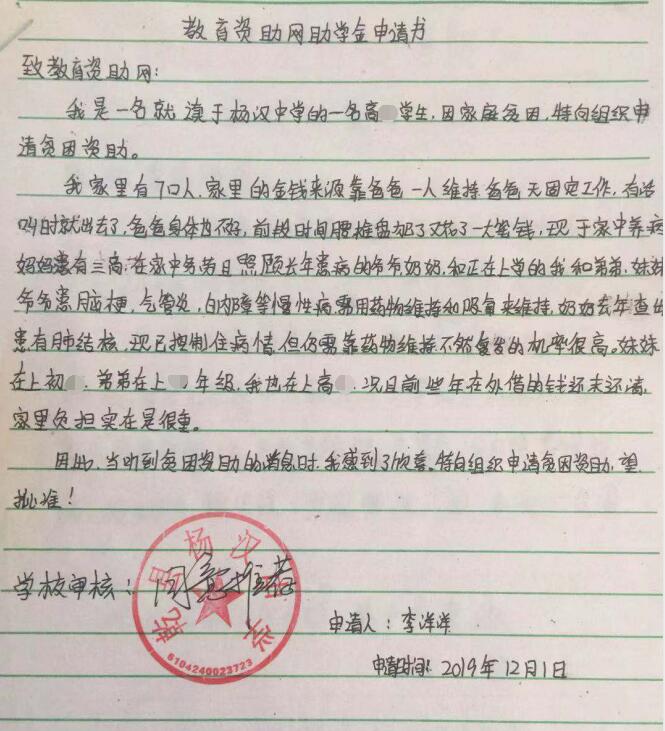 教育资助网助学金申请书
致教育资助网:
我是一名就读于杨汉中学的一名高 学生,因家庭贫困,特向组织申
请贫困资助。
我家里有7口人,家里的金钱来源靠爸爸一人维持,爸爸无固定工作,有活
叫时就出去了,爸爸身体也不好,前段时间腰椎盘 了又花了一大笔钱,现于家中养病
妈妈患有三高,在家中务劳且照顾长年患病的爷爷奶奶,和正在上学的我和弟弟,妹妹
爷爷患脑梗,气管炎,白内障等慢性病需用药物维持和吸氧来维持,奶奶去年查出
患有肺结核,现已控制住病情,但仍需靠药物维持不然复发的机率很高。妹妹
在上初 ,弟弟在上 年级,我也在上高 ,况且前些年在外借的钱还未还清,
家里负担实在是很重。
因此,当听到贫困资助的消息时,我感到了欣喜。特向组织申请贫困资助,望
批准!
学校审核: 同意推荐
乾县杨汉中学
6104240023723
申请人:李洋洋
申请时间:2019年12月1日